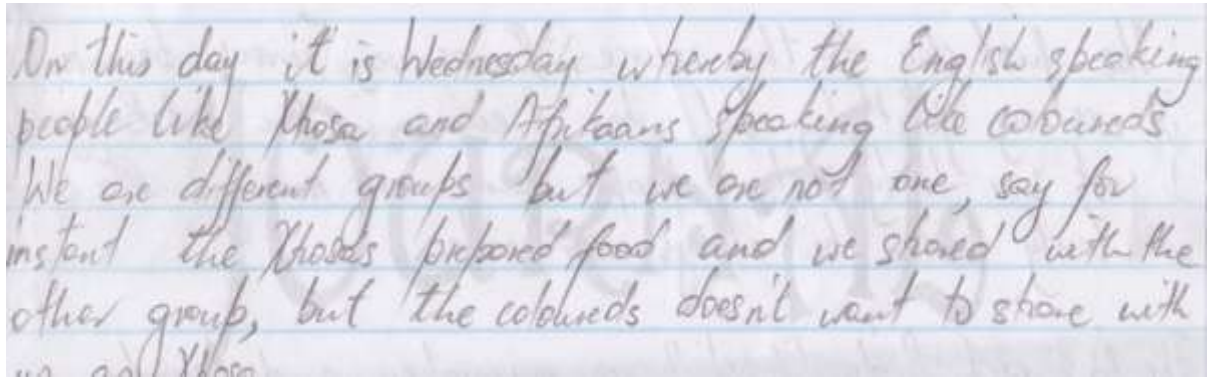 On this day it is Wednesday whereby the English speaking
people like Xhosa and Afrikaans speaking like coloureds
We are different groups but we are not one, say for
instant the Xhosa's prepared food and we shared with the
other group, but the coloureds doesn't want to share with
us as Xhosa